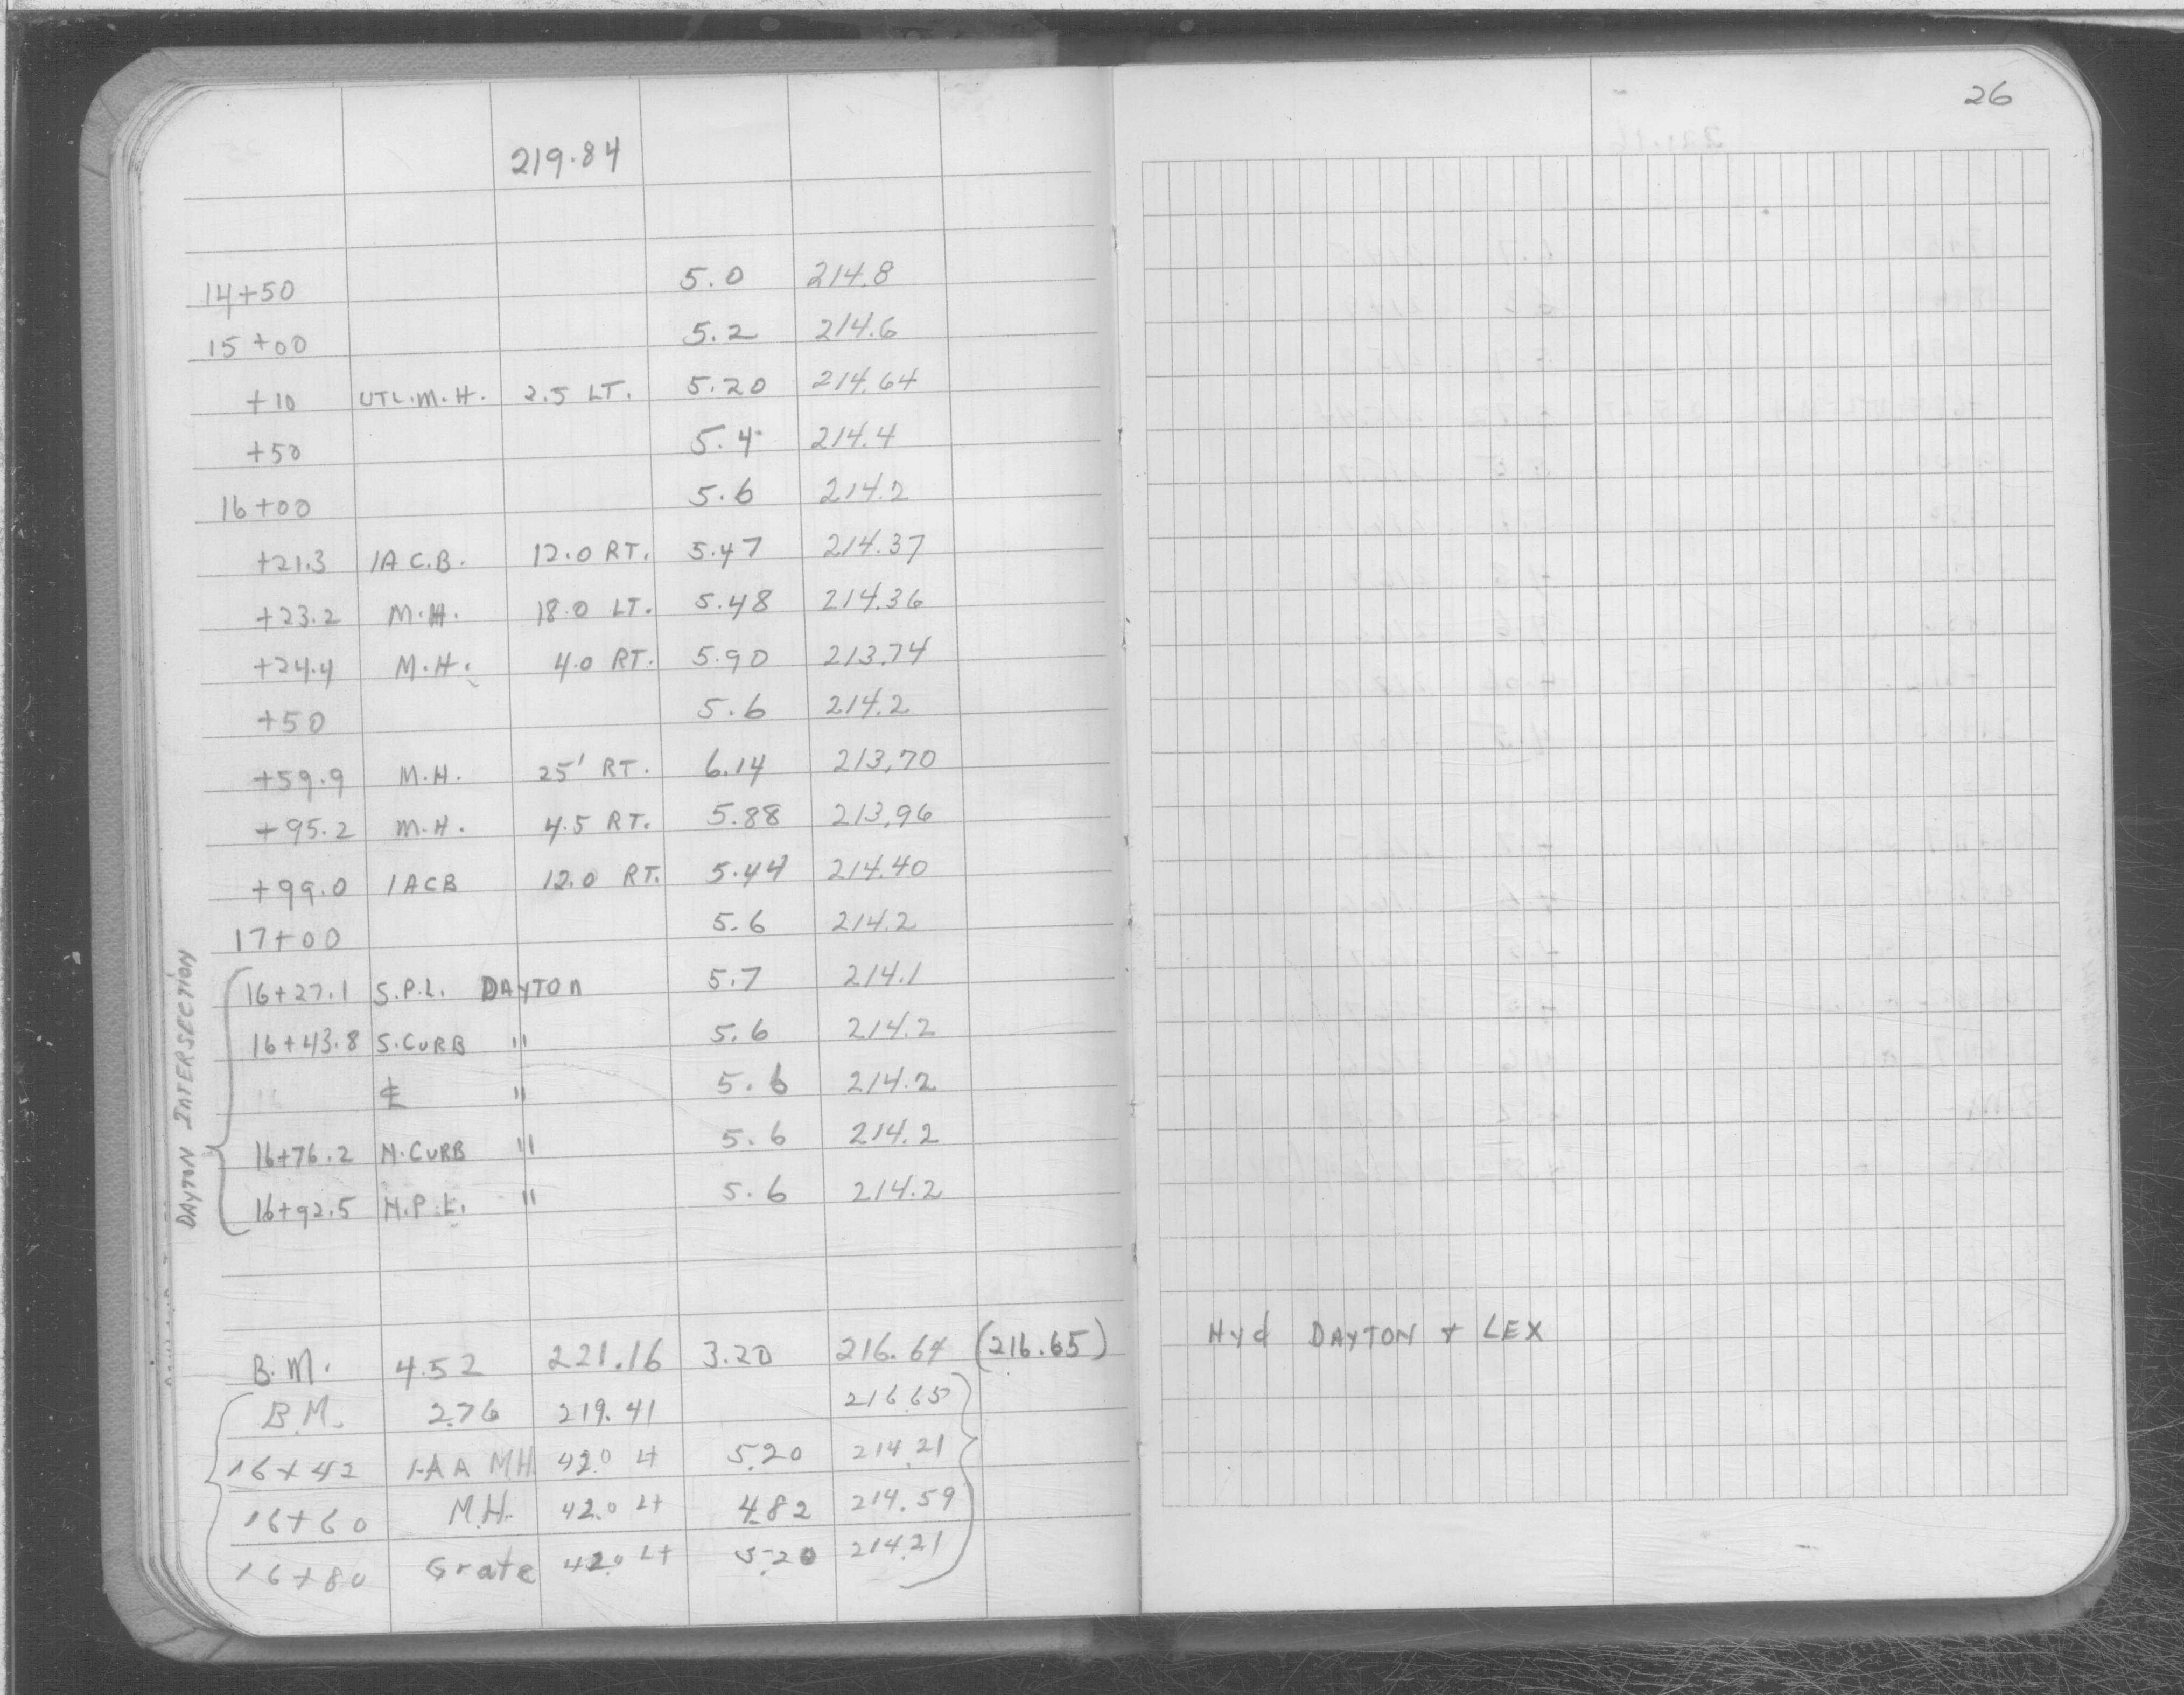 26
219.84
14+50 5.0 214.8
15+00 5.2 214.6
+10 UTL.M.H. 2.5 LT. 5.20 214.64
+50 5.4 214.4
16+00 5.6 214.2
+21.3 1A C.B. 12.0 RT. 5.47 214.37
+23.2 M.H. 18.0 LT. 5.48 214.36
+24.4 M.H. 4.0 RT. 5.90 213.74
+50 5.6 214.2
+59.9 M.H. 25' RT. 6.14 213.70
+95.2 M.H. 4.5 RT. 5.88 213.96
+99.0 1ACB 12.0 RT. 5.44 214.40
17+00 5.6 214.2
DAYTON INTERSECTION
16+27.1 S.P.L. DAYTON 5.7 214.1
16+43.8 S.CURB " 5.6 214.2
℄ " 5.6 214.2
16+76.2 N.CURB " 5.6 214.2
16+92.5 N.P.L. " 5.6 214.2
B.M. 4.52 221.16 3.20 216.64 (216.65) Hyd DAYTON + LEX
B.M. 2.76 219.41 216.65
16+42 1-AA MH 42.0 Lt 5.20 214.21
16+60 M.H. 42.0 Lt 4.82 214.59
16+80 Grate 42.0 Lt 5.20 214.21